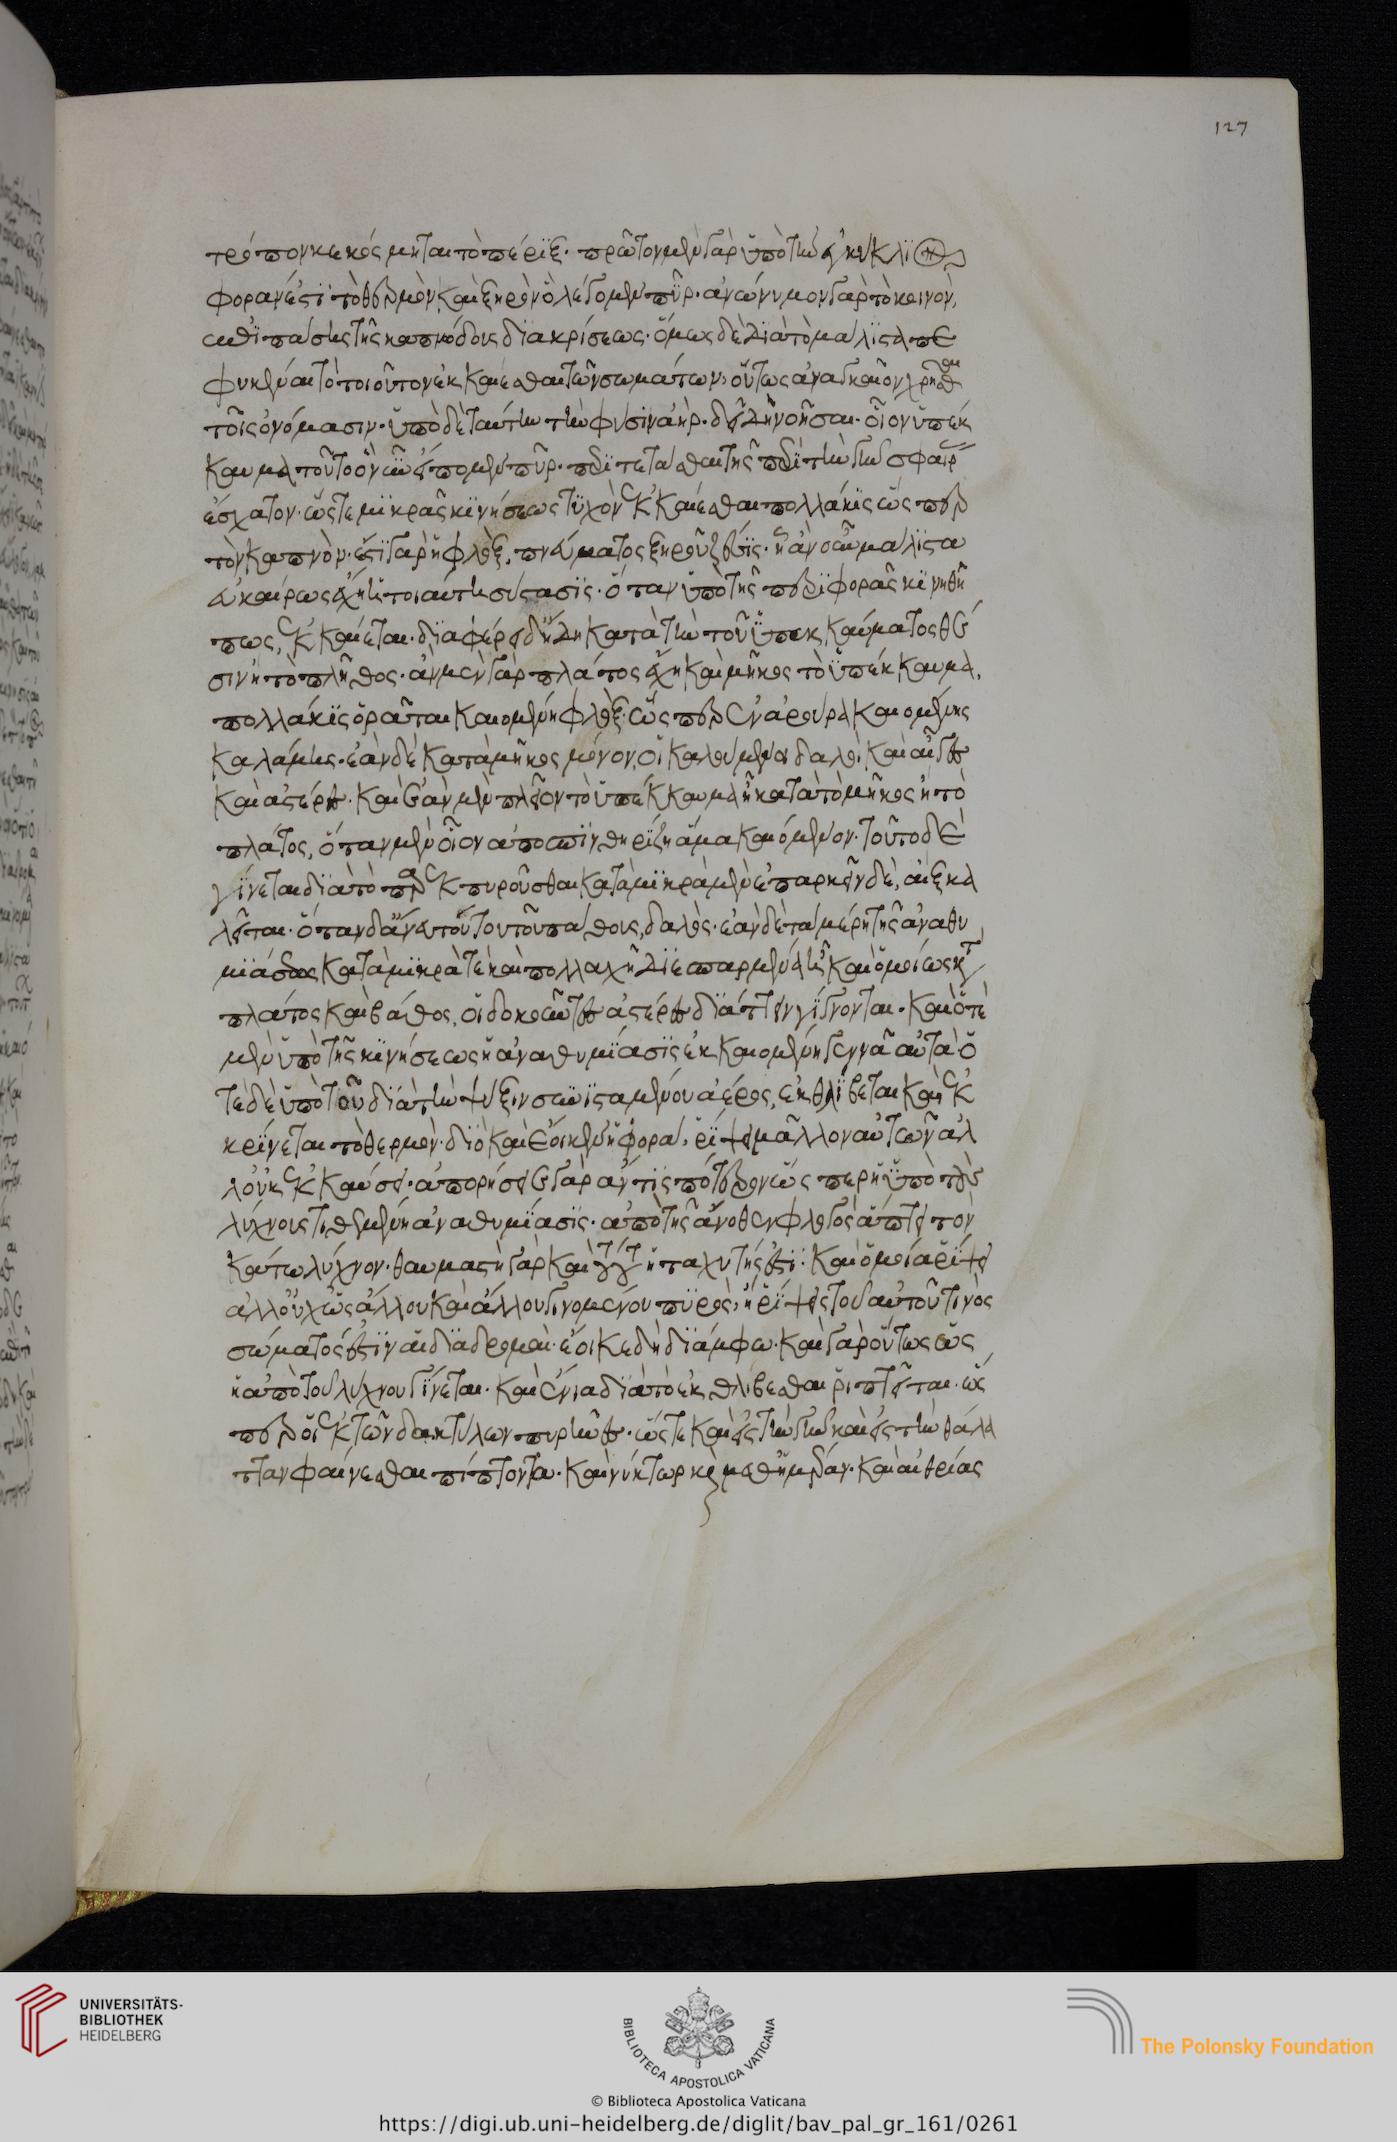 τρόπον κεκόσμηται τὸ πέριξ· πρῶτον μὲν γὰρ ὑπὸ τὴν ἐγκύκλιον
φοράν ἐστι τὸ θερμὸν καὶ ξηρὸν ὃ λέγομεν πῦρ· ἀνώνυμον γὰρ τὸ κοινὸν,
ἐπὶ πάσης τῆς καπνώδους διακρίσεως· ὅμως δὲ διὰ τὸ μάλιστα πε
φυκέναι τὸ τοιοῦτον ἐκκαίεσθαι τῶν σωμάτων, οὕτως ἀναγκαῖον χρῆσθαι
τοῖς ὀνόμασιν· ὑπὸ δὲ ταύτην τὴν φύσιν ἀήρ· δεῖ δὴ νοῆσαι· οἷον ὑπέκ
καυμα τοῦτο ὃ νῦν εἴπομεν πῦρ· περιτετάσθαι τῆς περὶ τὴν γῆν σφαίρας
ἔσχατον· ὥστε μικρᾶς κινήσεως τυχὸν ἐκκαίεσθαι πολλάκις ὥσπερ
τὸν καπνὸν· ἔστι γὰρ ἡ φλὸξ, πνεύματος ξηροῦ ζέσις· ᾗ ἂν οὖν μάλιστα
εὐκαίρως ἔχῃ ἡ τοιαύτη σύστασις· ὅταν ὑπὸ τῆς περιφορᾶς κινηθῇ
πως, ἐκκαίεται· διαφέρει δ' ἤδη κατὰ τὴν τοῦ ὑπεκκαύματος θέ
σιν ἢ τὸ πλῆθος· ἂν μὲν γὰρ πλάτος ἔχῃ καὶ μῆκος τὸ ὑπέκκαυμα,
πολλάκις ὁρᾶται καιομένη φλὸξ· ὥσπερ ἐν ἀρούρα καιομένης
καλάμης· ἐὰν δὲ κατὰ μῆκος μόνον, οἱ καλούμενοι δαλοὶ καὶ αἶγες
καὶ ἀστέρες· καὶ ἐὰν μὲν πλεῖον τὸ ὑπέκκαυμα ᾖ κατὰ τὸ μῆκος ἢ τὸ
πλάτος, ὅταν μὲν οἷον ἀποσπινθηρίζῃ ἅμα καιόμενον· τοῦτο δὲ
γίνεται διὰ τὸ παρεκπυροῦσθαι κατὰ μικρὰ μὲν ἐπ' ἀρχὴν δὲ, αἲξ κα
λεῖται· ὅταν δ' ἄνευ τούτου τοῦ πάθους, δαλὸς· ἐὰν δὲ τὰ μέρη τῆς ἀναθυ
μιάσεως κατὰ μικρά τε καὶ πολλαχῇ διεσπαρμένα ᾖ καὶ ὁμοίως κατὰ
πλάτος καὶ βάθος, οἱ δοκοῦντες ἀστέρες διάττειν γίγνονται· καὶ ὁτὲ
μὲν ὑπὸ τῆς κινήσεως ἡ ἀναθυμίασις ἐκκαιομένη γεννᾷ αὐτὰ ὁ
τὲ δὲ ὑπὸ τοῦ διὰ τὴν ψύξιν συνισταμένου ἀέρος, ἐκθλίβεται καὶ ἐκ
κρίνεται τὸ θερμὸν· διὸ καὶ ἔοικεν ἡ φορὰ, ῥίψει μᾶλλον αὐτῶν ἀλ
λ' οὐκ ἐκκαύσει· ἀπορήσειε γὰρ ἄν τις πότερον ὥσπερ ἡ ὑπὸ τοὺς
λύχνους τιθεμένη ἀναθυμίασις· ἀπὸ τῆς ἄνωθεν φλογὸς ἅπτει τὸν
κάτω λύχνον· θαυμαστὴ γὰρ καὶ τούτου ἡ ταχυτής ἐστι· καὶ ὁμοία ῥίψει
ἀλλ' οὐχ ὡς ἄλλου καὶ ἄλλου γινομένου πυρὸς, ἢ ῥίψεις τοῦ αὐτοῦ τινὸς
σώματός εἰσιν αἱ διαδρομαὶ· ἔοικε δὴ δι' ἄμφω· καὶ γὰρ οὕτως ὡς
ἡ ἀπὸ τοῦ λύχνου γίνεται· καὶ ἔνια διὰ τὸ ἐκθλίβεσθαι ῥιπτεῖται· ὥσ
περ οἱ ἐκ τῶν δακτύλων πυρῆνες· ὥστε καὶ εἰς τὴν γῆν καὶ εἰς τὴν θάλα
τταν φαίνεσθαι πίπτοντα· καὶ νύκτωρ καὶ μεθ' ἡμέραν· καὶ αἰθρίας
127
UNIVERSITÄTS-
BIBLIOTHEK
HEIDELBERG
BIBLIOTECA APOSTOLICA VATICANA
The Polonsky Foundation
© Biblioteca Apostolica Vaticana
https://digi.ub.uni-heidelberg.de/diglit/bav_pal_gr_161/0261